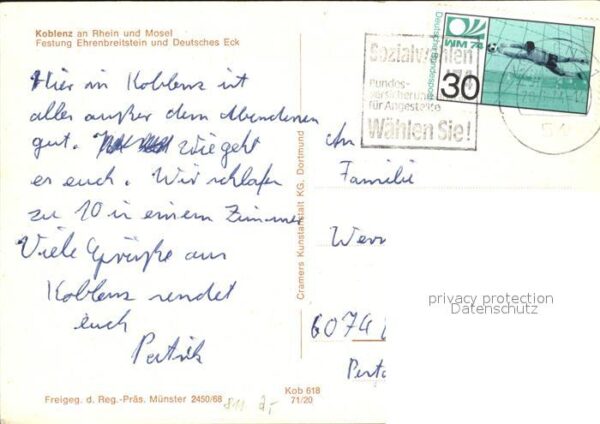 Koblenz an Rhein und Mosel
Festung Ehrenbreitstein und Deutsches Eck
Hier in Koblenz ist
alles außer dem Abendessen
gut. wie geht
es euch. Wir schlafen
zu 10 in einem Zimmer
Viele Grüße aus
Koblenz sendet
euch
Patrik
Freigeg. d. Reg.-Präs. Münster 2450/68
Kob 618
71/20
Cramers Kunstanstalt KG, Dortmund
Sozialwahlen
74
Bundes-
versicherung
für Angestellte
Wählen Sie!
Deutsche Bundespost
WM 74
30
An
Familie
Wern
6074
privacy protection
Datenschutz